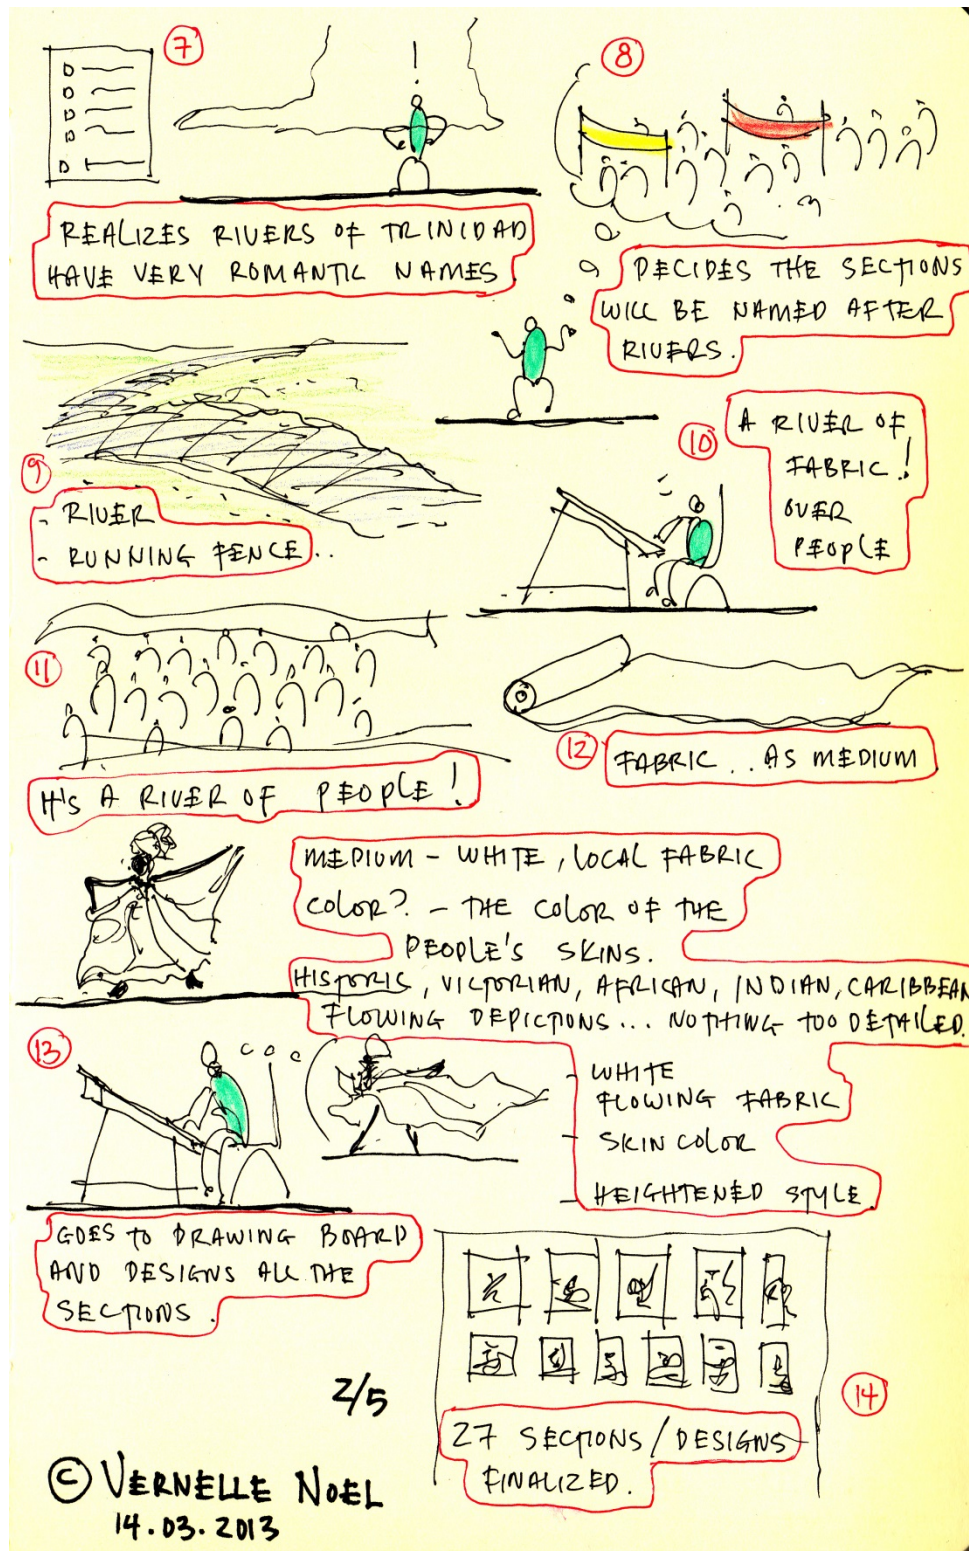 7
REALIZES RIVERS OF TRINIDAD
HAVE VERY ROMANTIC NAMES
8
DECIDES THE SECTIONS
WILL BE NAMED AFTER
RIVERS.
9
- RIVER
- RUNNING FENCE..
10
A RIVER OF
FABRIC!
OVER
PEOPLE
11
IT'S A RIVER OF PEOPLE!
12
FABRIC... AS MEDIUM
MEDIUM - WHITE, LOCAL FABRIC
COLOR? - THE COLOR OF THE
PEOPLE'S SKINS.
HISTORIC, VICTORIAN, AFRICAN, INDIAN, CARIBBEAN
FLOWING DEPICTIONS... NOTHING TOO DETAILED.
- WHITE
FLOWING FABRIC
- SKIN COLOR
- HEIGHTENED STYLE
13
GOES TO DRAWING BOARD
AND DESIGNS ALL THE
SECTIONS.
14
27 SECTIONS/DESIGNS
FINALIZED.
2/5
© VERNELLE NOEL
14.03.2013